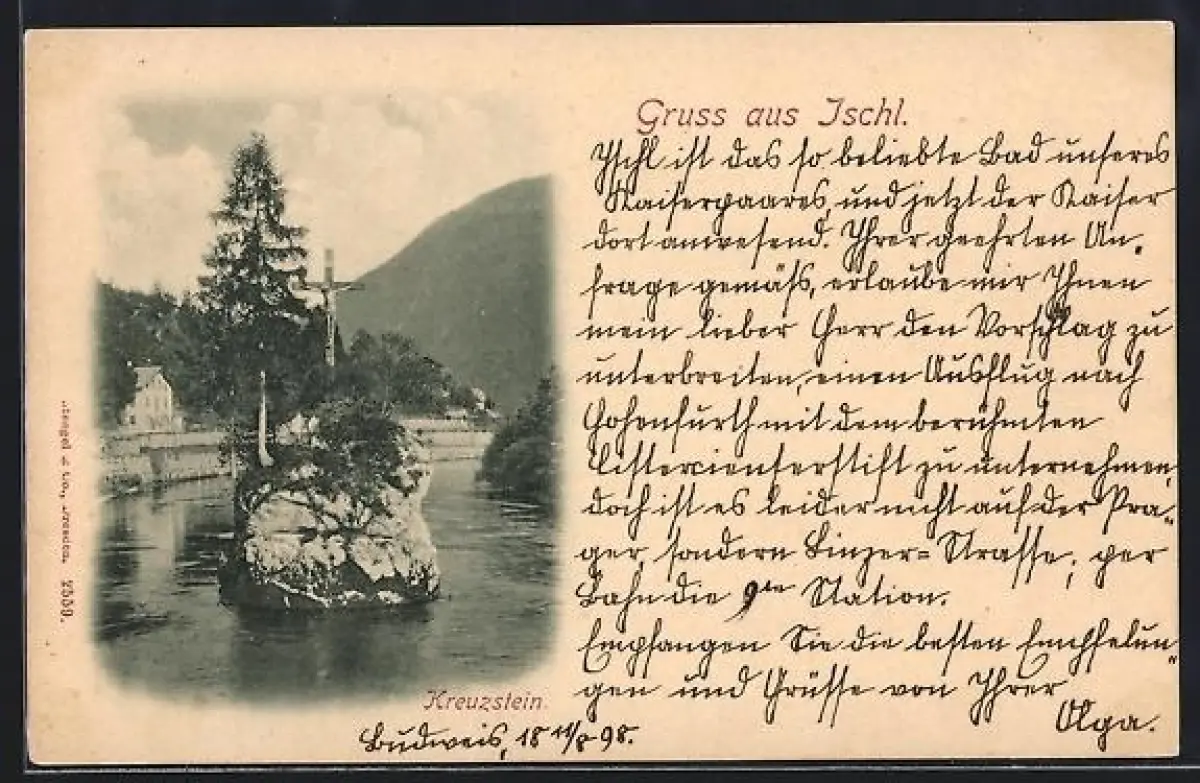 Gruss aus Ischl.
Ischl ist das so beliebte Bad unseres
Kaiserpaares, und jetzt der Kaiser
dort anwesend. Ihrer geehrten An-
frage gemäß, erlaube mir Ihnen
mein lieber Herr den Vorschlag zu
unterbreiten, einen Ausflug nach
Hohenfurth mit dem berühmten
Cistercienserstift zu unternehmen,
doch ist es leider nicht auf der Pra-
ger, sondern Linzer-Strasse, per
Bahn die 9te Station.
Empfangen Sie die besten Empfelun-
gen und Grüsse von Ihrer
Olga.
Kreuzstein.
Budweis, 18 11/8 98.
Stengel & Co., Dresden. 2559.